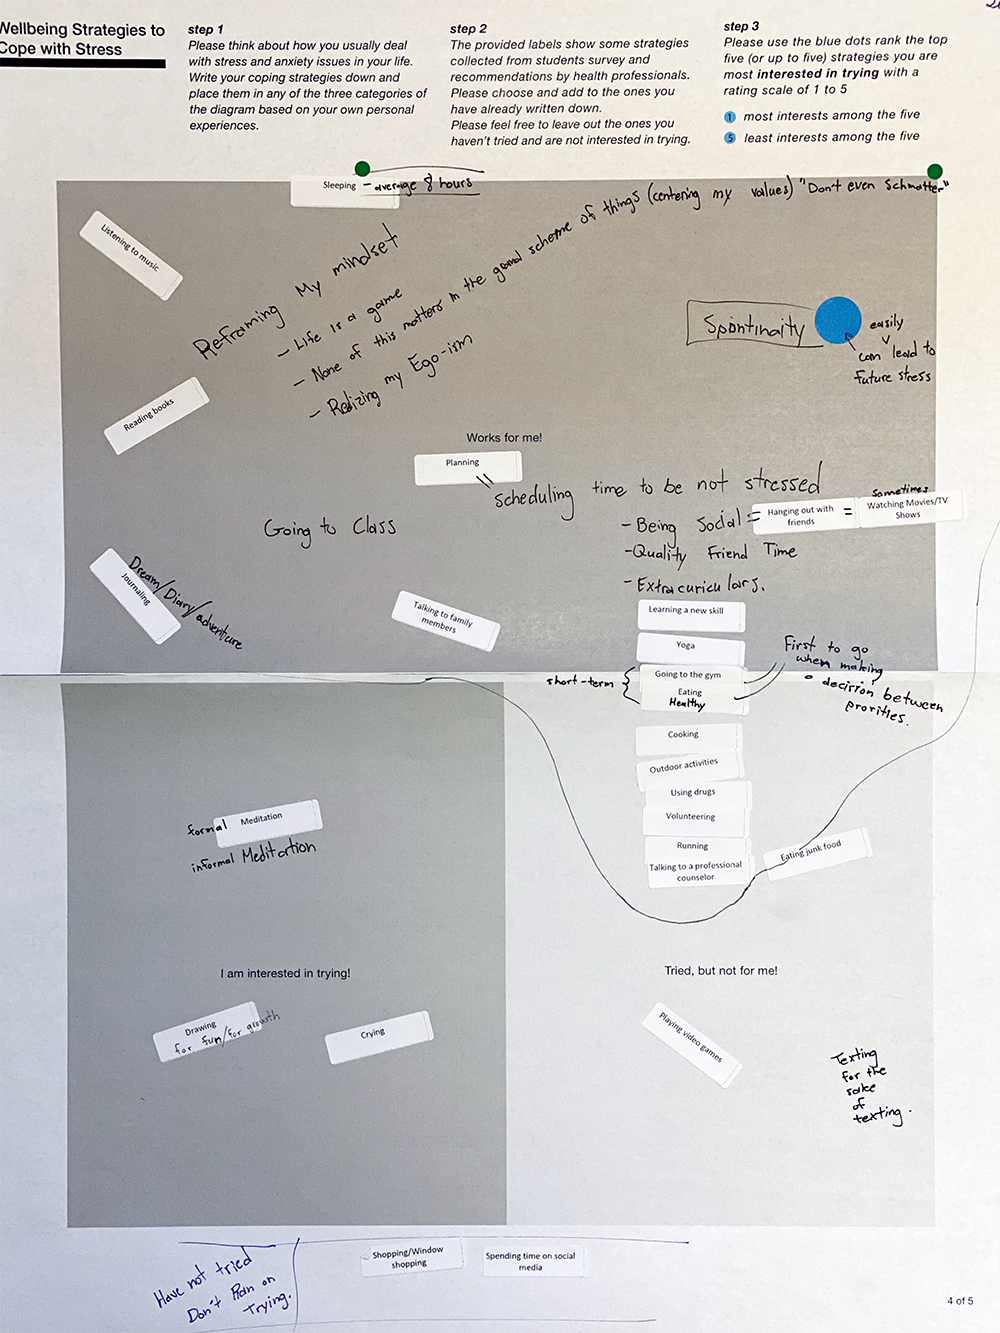 Wellbeing Strategies to
Cope with Stress
step 1
Please think about how you usually deal
with stress and anxiety issues in your life.
Write your coping strategies down and
place them in any of the three categories of
the diagram based on your own personal
experiences.
step 2
The provided labels show some strategies
collected from students survey and
recommendations by health professionals.
Please choose and add to the ones you
have already written down.
Please feel free to leave out the ones you
haven't tried and are not interested in trying.
step 3
Please use the blue dots rank the top
five (or up to five) strategies you are
most interested in trying with a
rating scale of 1 to 5
1 most interests among the five
5 least interests among the five
Sleeping - average 8 hours
Listening to music
Reframing My mindset
- Life is a game
- None of this matters in the grand scheme of things (centering my values) "Don't even Schmatter"
- Relizing my Ego-ism
Spontinaity
easily
can lead to
future stress
Reading books
Works for me!
Planning
scheduling time to be not stressed
Going to Class
- Being Social = Hanging out with
friends
=
sometimes
Watching Movies/TV
Shows
- Quality Friend Time
- Extracuriculars.
Journaling
Dream/Diary/adventure
Talking to family
members
Learning a new skill
Yoga
short-term
Going to the gym
Eating
Healthy
First to go
when making
a decision between
prorities.
Cooking
Outdoor activities
Using drugs
Volunteering
Running
Talking to a professional
counselor
Eating junk food
formal Meditation
informal Meditation
I am interested in trying!
Drawing
for fun/for growth
Crying
Tried, but not for me!
Playing video games
Texting
for the
sake
of
texting.
Have not tried
Don't Plan on
trying.
Shopping/Window
shopping
Spending time on social
media
4 of 5